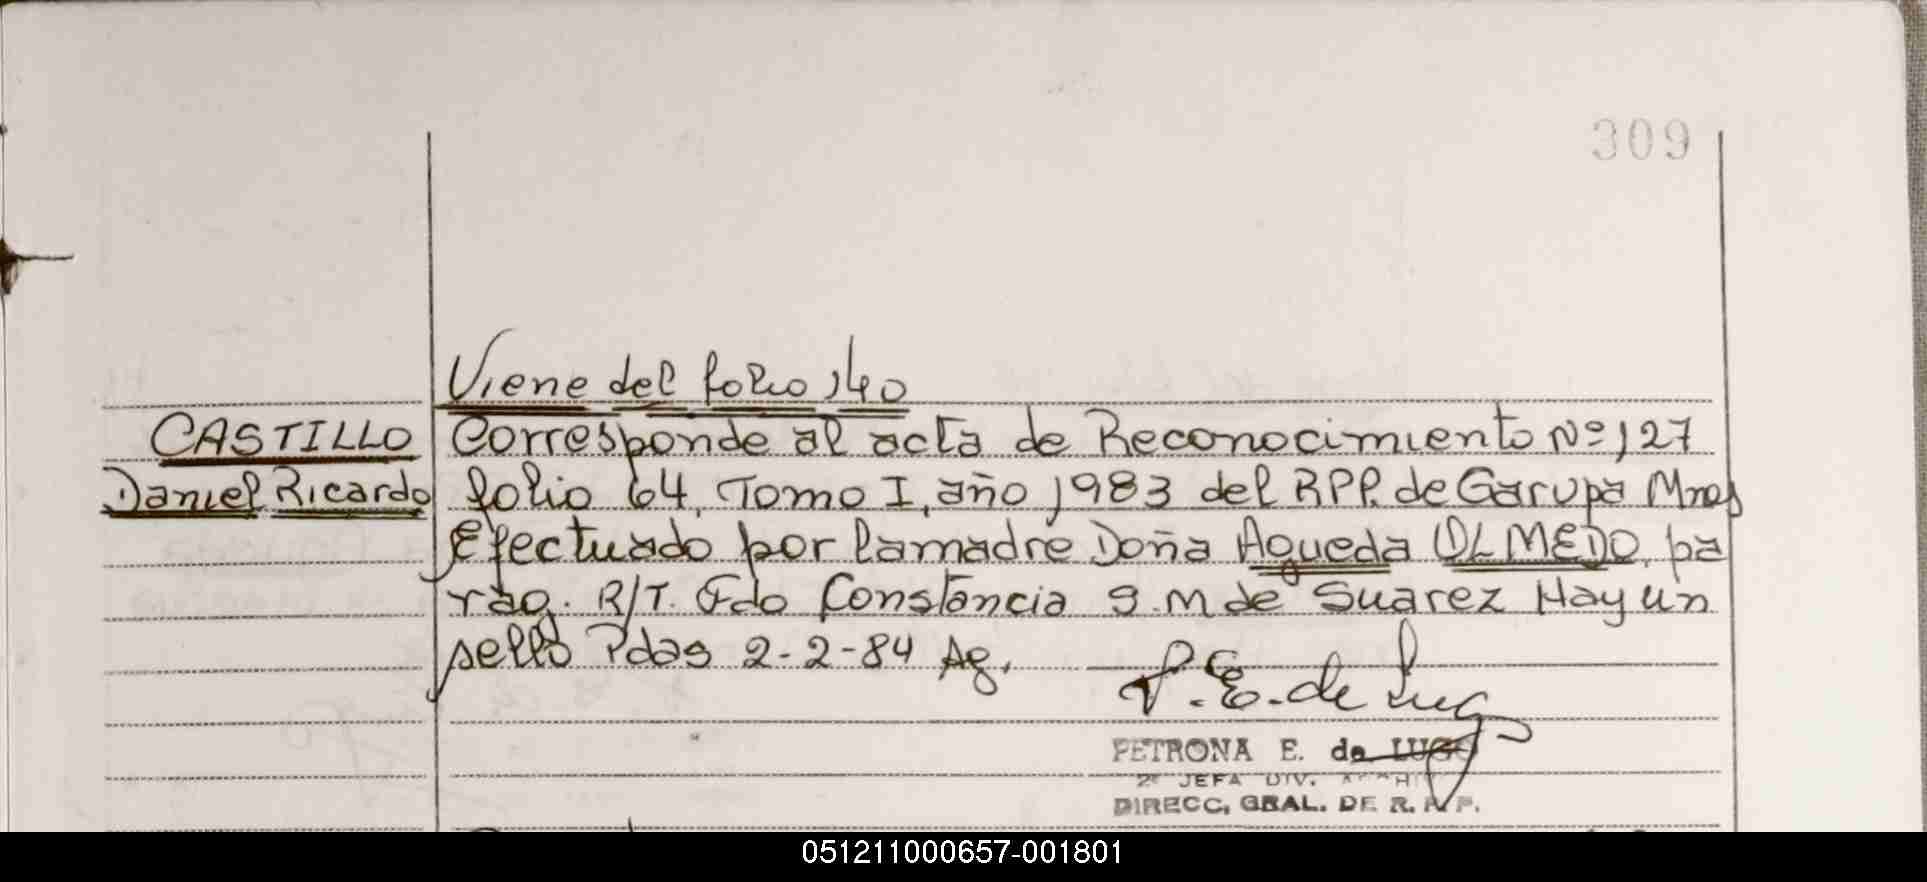 309
Viene del folio 140
CASTILLO Corresponde al acta de Reconocimiento Nº 127
Daniel Ricardo folio 64, Tomo I, año 1983 del RPP. de Garupa Mnes
Efectuado por la madre Doña Agueda OLMEDO, pa
rag. R/T. Fdo Constancia S. M de Suarez Hay un
sello Pdas 2-2-84 Ag.
P. E. de Lugo
PETRONA E. de LUGO
2ª JEFA DIV. ARCHI
DIRECC, GRAL. DE R. P. P.
051211000657-001801